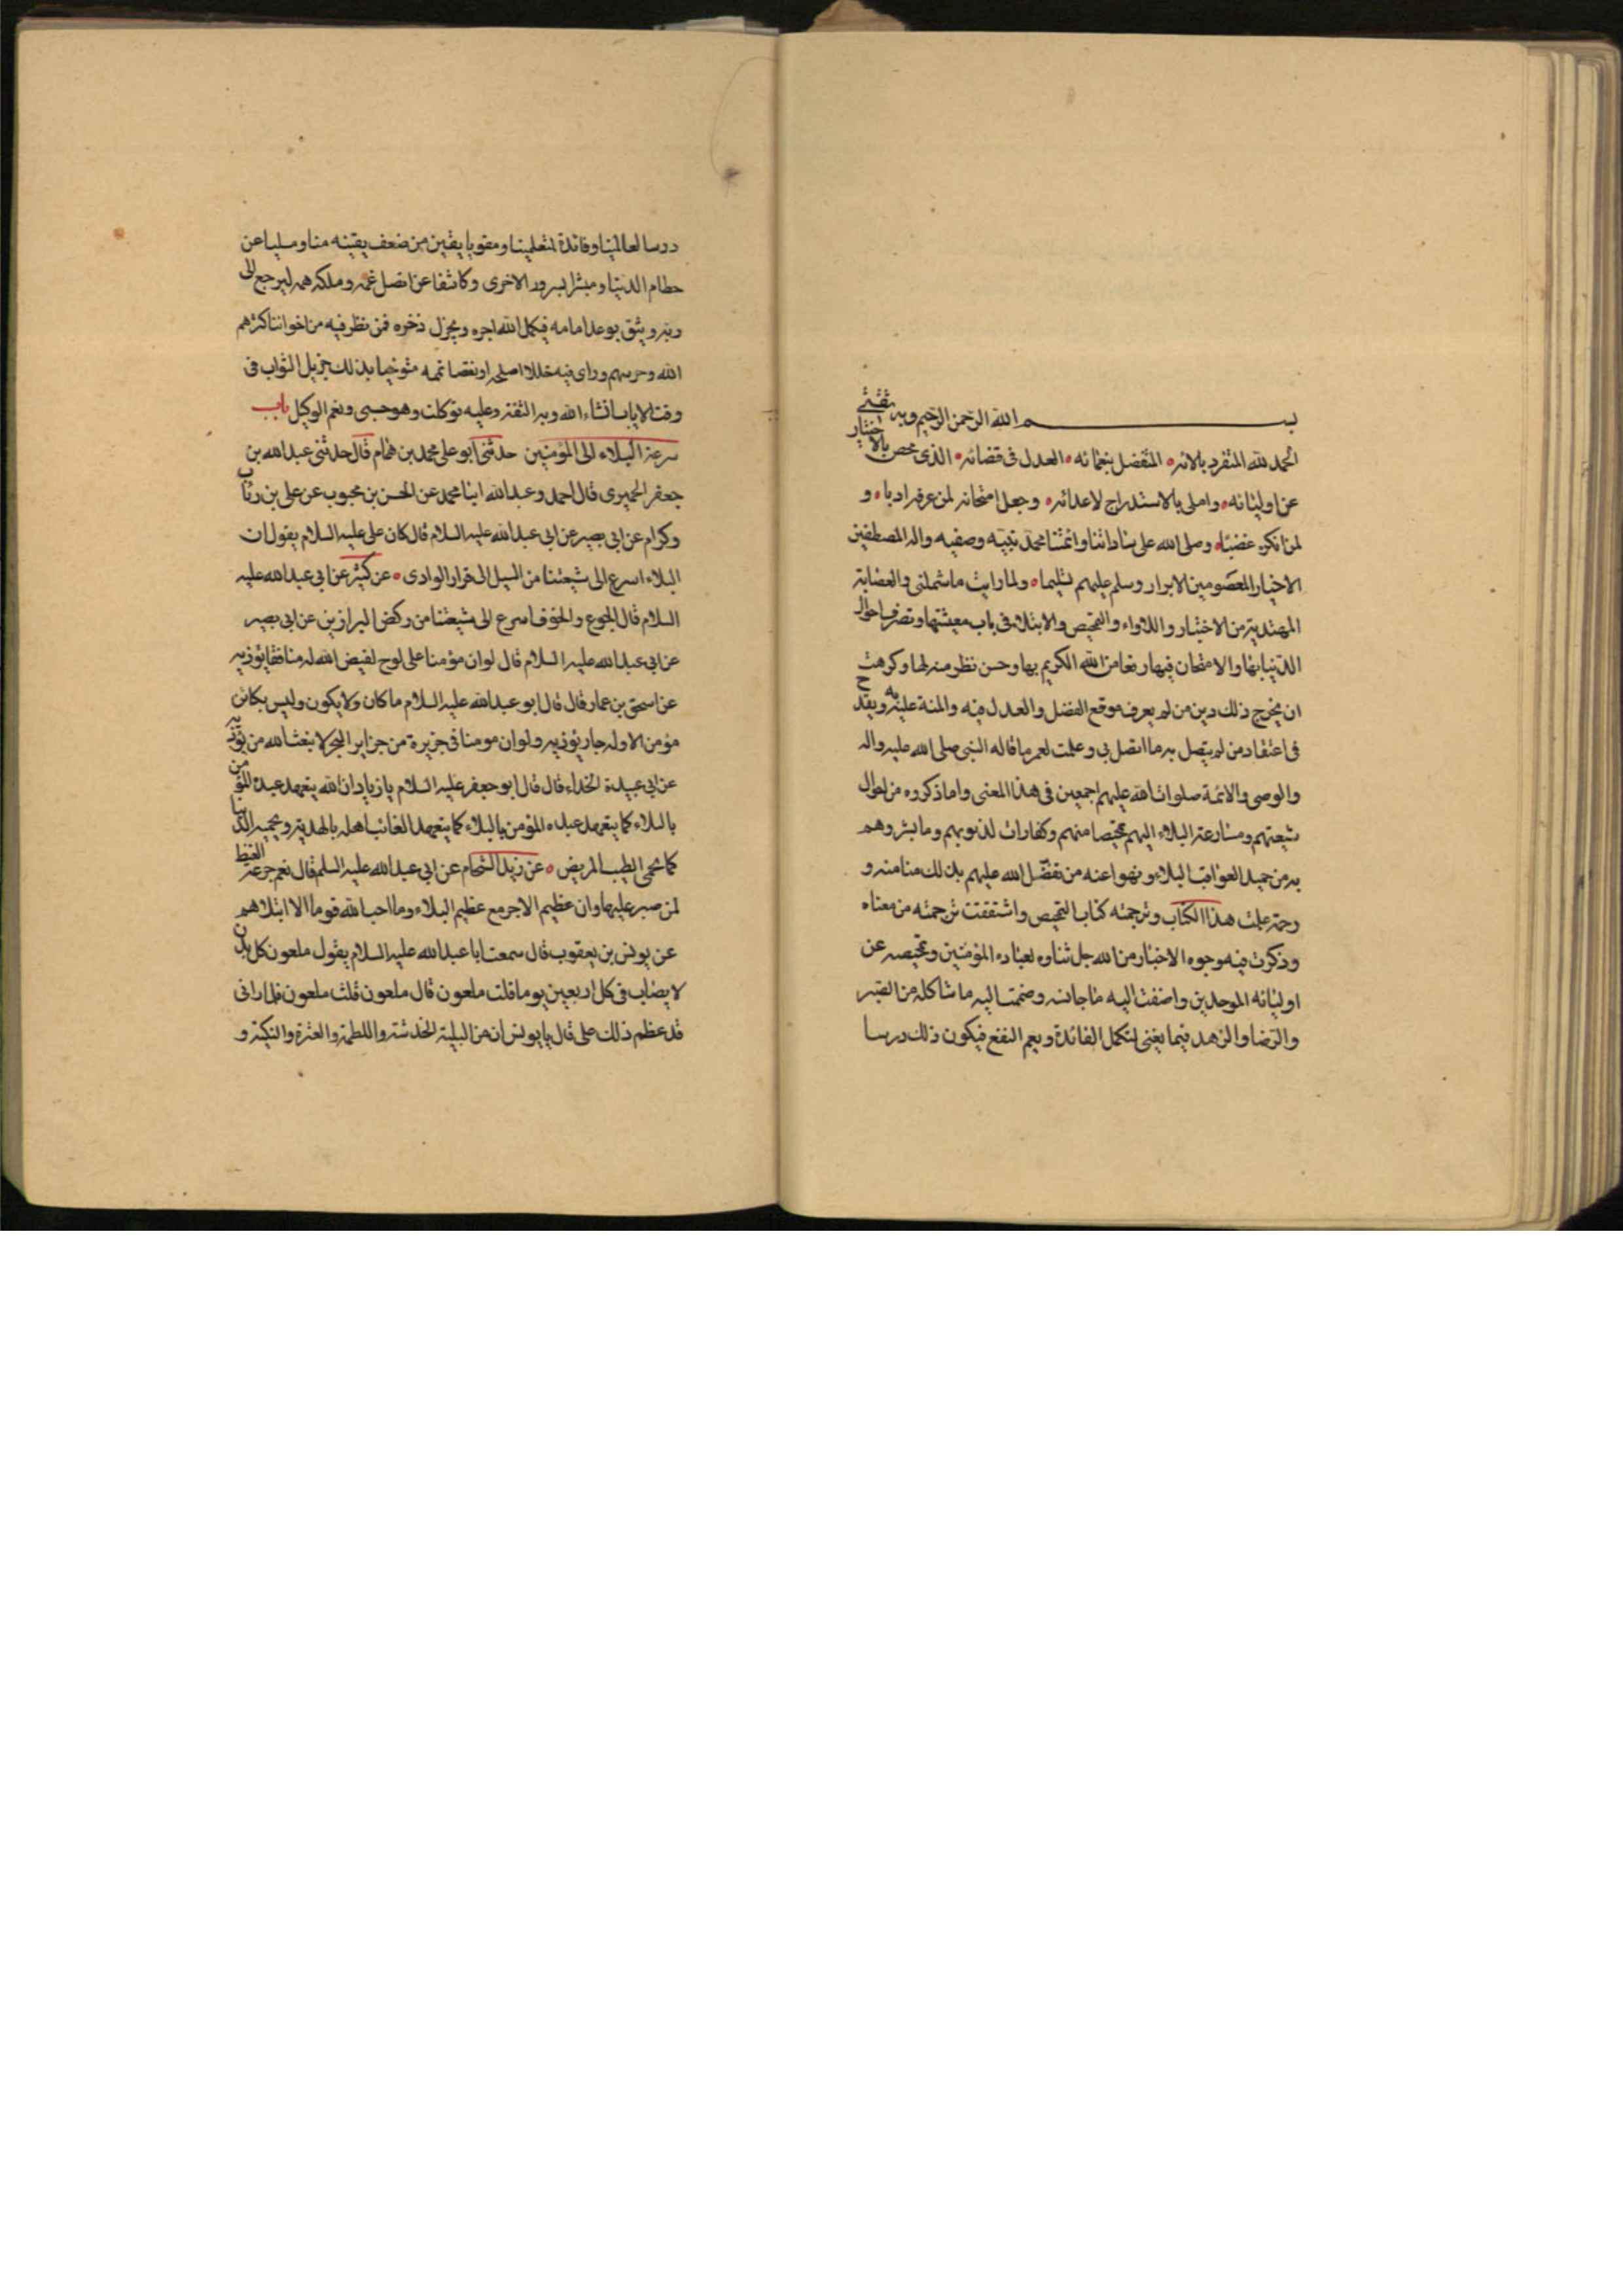 بسم الله الرحمن الرحيم وبه ثقتي
الحمد لله المتفرد بالائه المتفضل بنعمائه العدل في قضائه الذي محص بالاختبار
عن اوليائه واملى بالاستدراج لاعدائه وجعل امتحانه لمن عرفه ادبا و
لمن انكره غضبا وصلى الله على ساداتنا وائمتنا محمد نبيه وصفيه واله المصطفين
الاخيار المعصومين الابرار وسلم عليهم تسليما ولما رايت ما شملني والعصابة
المهتدية من الاختبار واللاواء والتمحيص والابتلاء في باب معيشتها وتصرف احوال
الدنيا بها والامتحان فيها رفعا من الله الكريم بها وحسن نظر منه لها وكرهت
ان يخرج ذلك دين من لم يعرف موقع الفضل والعدل فيه والمنة عليه به ويقدح
في اعتقاد من لم يتصل به ما اتصل بي وعلمت لعمر ما قاله النبي صلى الله عليه واله
والوصي والائمة صلوات الله عليهم اجمعين في هذا المعنى واما ذكروه من احوال
شيعتهم ومسارعة البلاء اليهم تمحيصا منهم وكفارات لذنوبهم وما بشروهم
به من حميد العواقب البلاء ونهوا عنه من تفضل الله عليهم بذلك منا منه و
رحمة عملت هذا الكتاب وترجمته كتاب التمحيص واشتققت ترجمته من معناه
وذكرت فيه وجوه الاختبار من الله جل ثناوه لعباده المؤمنين وتمحيصه عن
اوليائه الموحدين واضفت اليه ما جانسه وضممت اليه ما شاكله من الصبر
والرضا والزهد فيما يفنى لتكمل الفائدة ويعم النفع فيكون ذلك درسا
درسا لعالمنا وفائدة لمتعلمنا ومقويا يقين من ضعف يقينه منا ومسليا عن
حطام الدنيا ومبشرا بسرور الاخرى وكاشفا عن اتصل غمه وملكه همه ليرجع الى
ربه ويثق بوعد امامه فيكمل الله اجره ويجزل ذخره فمن نظر فيه من اخواننا كثرهم
الله وحرسهم وراى فيه خللا اصلحه او نقصا تممه متوخيا بذلك جزيل الثواب في
وقت الاياب انشاء الله وبه الثقة وعليه توكلت وهو حسبي ونعم الوكيل باب
سرعة البلاء الى المؤمنين حدثني ابو علي محمد بن همام قال حدثني عبد الله بن
جعفر الحميري قال احمد وعبد الله ابنا محمد عن الحسن بن محبوب عن علي بن رئاب
وكرام عن ابي بصير عن ابي عبد الله عليه السلام قال كان علي عليه السلام يقول ان
البلاء اسرع الى شيعتنا من السيل الى قرار الوادي عن كثير عن ابي عبد الله عليه
السلام قال الجوع والخوف اسرع الى شيعتنا من ركض البراذين عن ابي بصير
عن ابي عبد الله عليه السلام قال لو ان مؤمنا على لوح لقيض الله له منافقا يؤذيه
عن اسحق بن عمار قال قال ابو عبد الله عليه السلام ما كان ولا يكون وليس بكائن
مؤمن الا وله جار يؤذيه ولو ان مومنا في جزيرة من جزاير البحر لابتعث الله من يؤذيه
عن ابي عبيدة الحذاء قال قال ابو جعفر عليه السلام يا زياد ان الله يتعهد عبده المؤمن
بالبلاء كما يتعهد عبده المؤمن بالبلاء كما يتعهد الغائب اهله بالهدية ويحميه الدنيا
كما يحمي الطبيب المريض عن زيد الشحام عن ابي عبد الله عليه السلم قال نعم جرعة الغيظ
لمن صبر عليها وان عظيم الاجر مع عظيم البلاء وما احب الله قوما الا ابتلاهم
عن يونس بن يعقوب قال سمعت ابا عبد الله عليه السلام يقول ملعون كل بدن
لا يصاب في كل اربعين يوما قلت ملعون قال ملعون قلت ملعون فلما راني
قد عظم ذلك علي قال يا يونس ان من البلية الخدشة واللطمة والعثرة والنكبة و